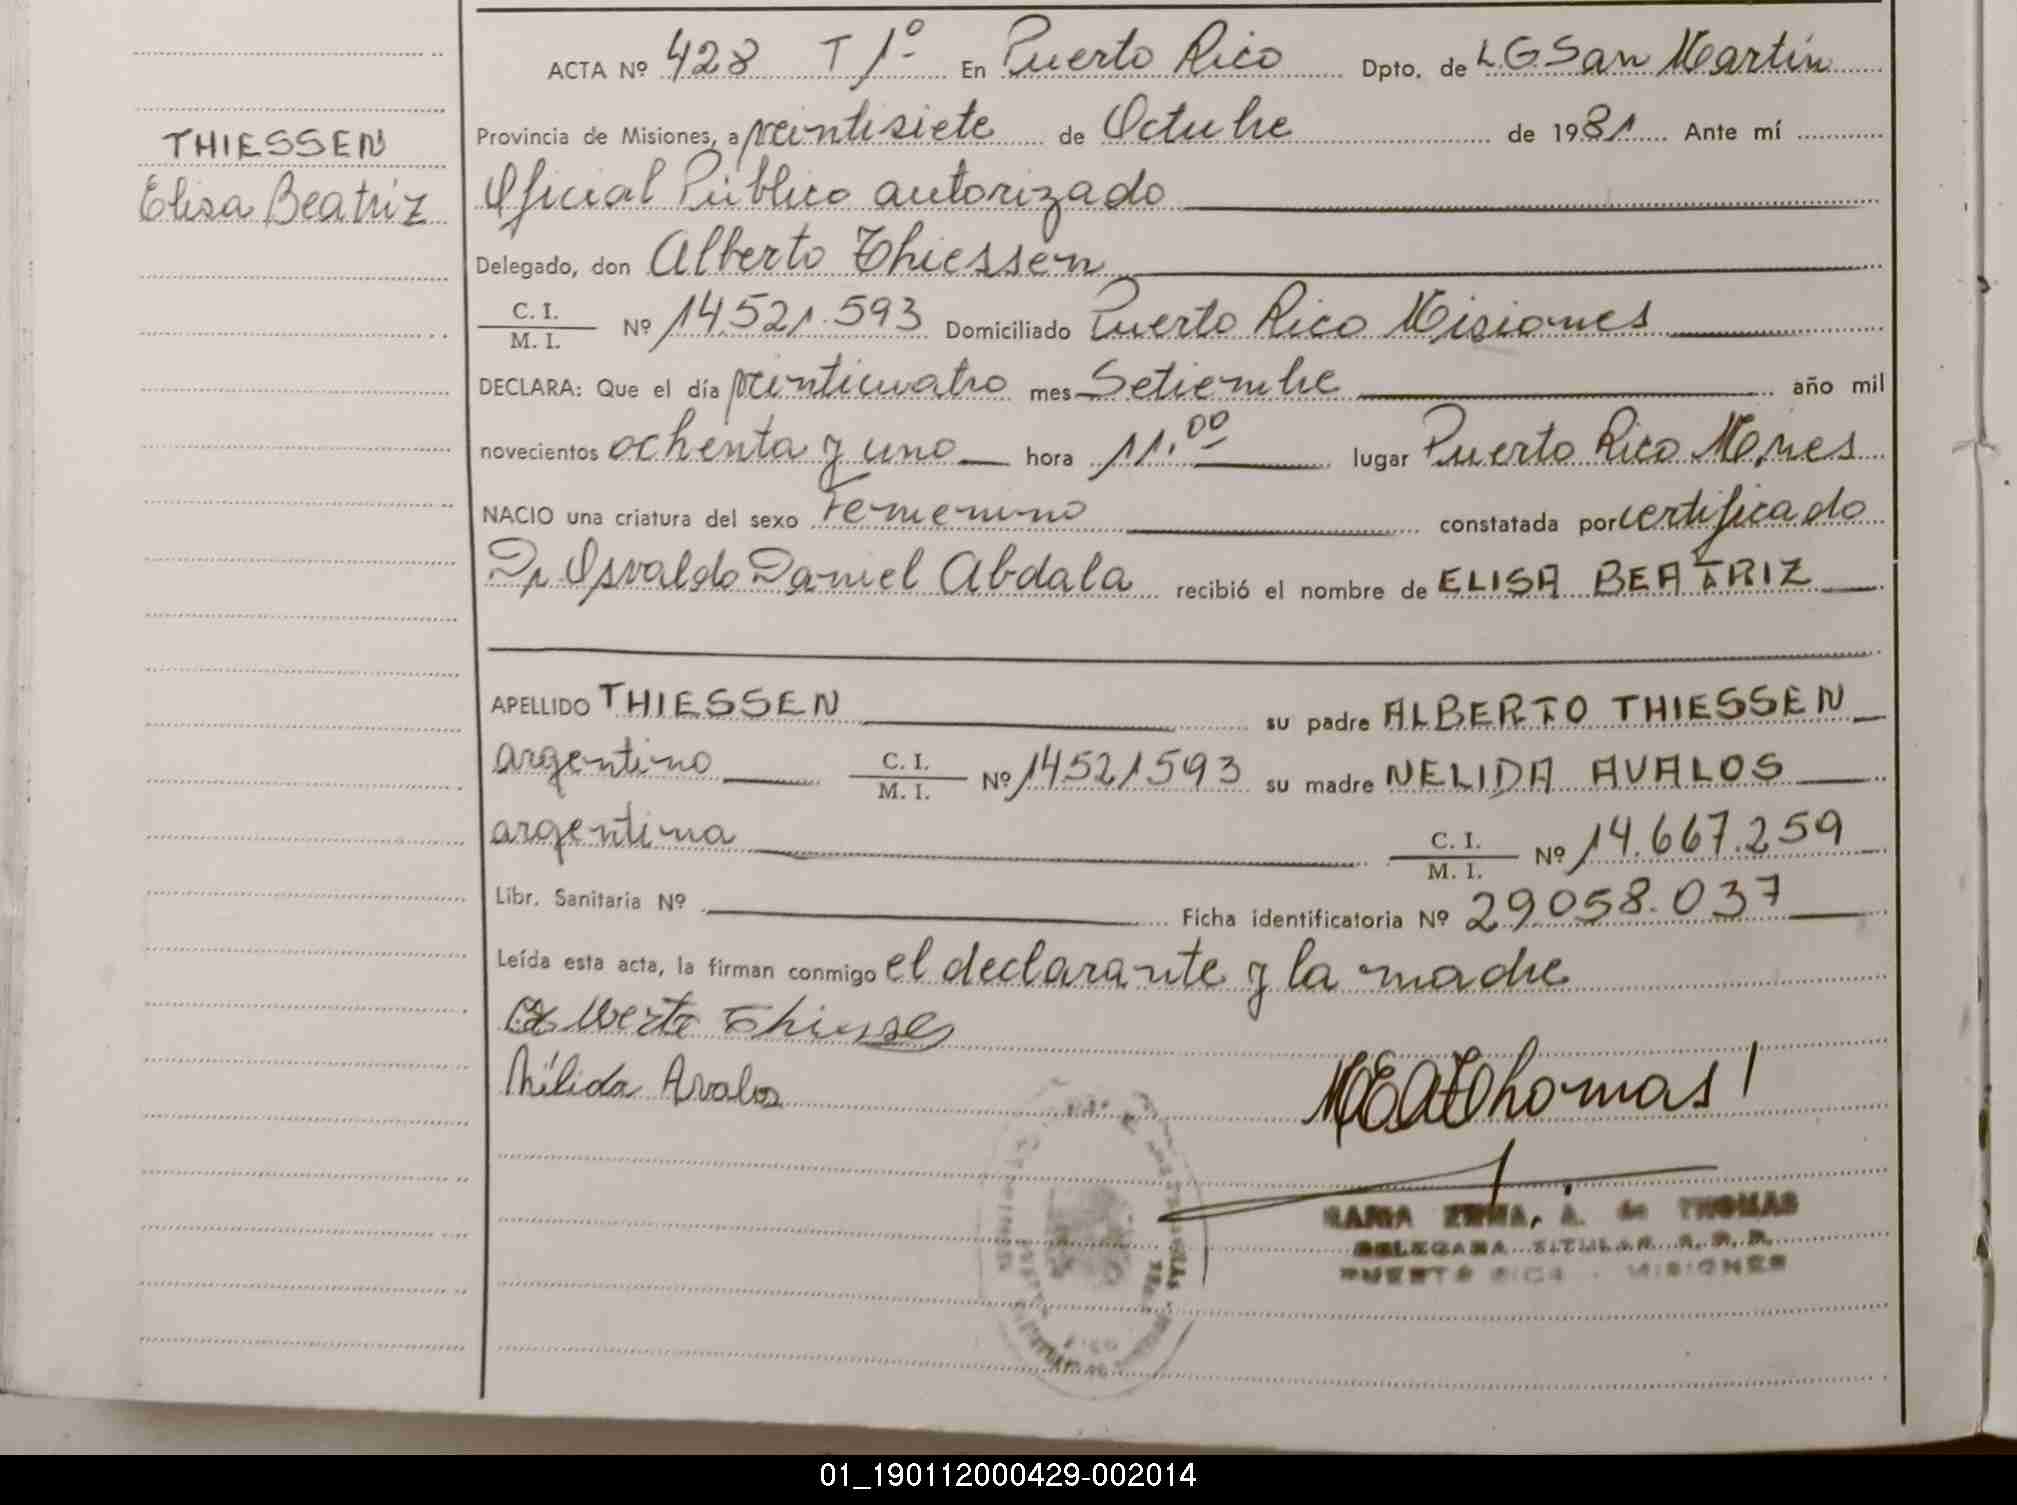 ACTA Nº 428 T 1º En Puerto Rico Dpto. de L.G San Martín
Provincia de Misiones, a veintisiete de Octubre de 1981 Ante mí
THIESSEN
Elisa Beatriz
Oficial Público autorizado
Delegado, don Alberto Thiessen
C. I.
M. I. Nº 14.521.593 Domiciliado Puerto Rico Misiones
DECLARA: Que el día veinticuatro mes Setiembre año mil
novecientos ochenta y uno hora 11.00 lugar Puerto Rico Mnes
NACIO una criatura del sexo Femenino constatada por certificado
Dr Osvaldo Daniel Abdala recibió el nombre de ELISA BEATRIZ
APELLIDO THIESSEN su padre ALBERTO THIESSEN
argentino C. I.
M. I. Nº 14521593 su madre NELIDA AVALOS
argentina C. I.
M. I. Nº 14.667.259
Libr. Sanitaria Nº Ficha identificatoria Nº 29058.037
Leída esta acta, la firman conmigo el declarante y la madre
Alberto Thiessen
Nélida Avalos
MEAThomas
MARIA ERMA, A. de THOMAS
DELEGADA TITULAR R. P. P.
PUERTO RICO - MISIONES
01_190112000429-002014